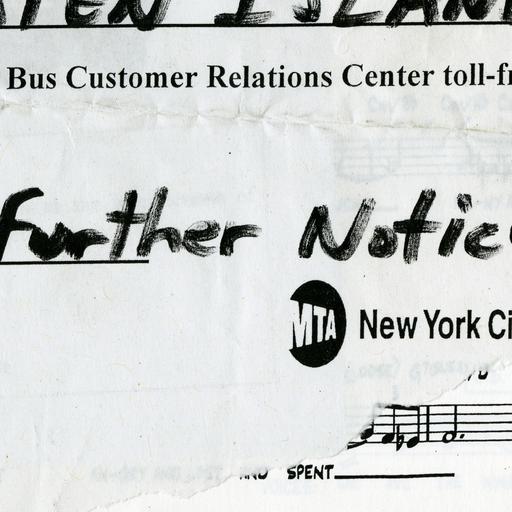 TEN ISLAN
Bus Customer Relations Center toll-fr
further Notic
MTA New York Ci
AND SPENT